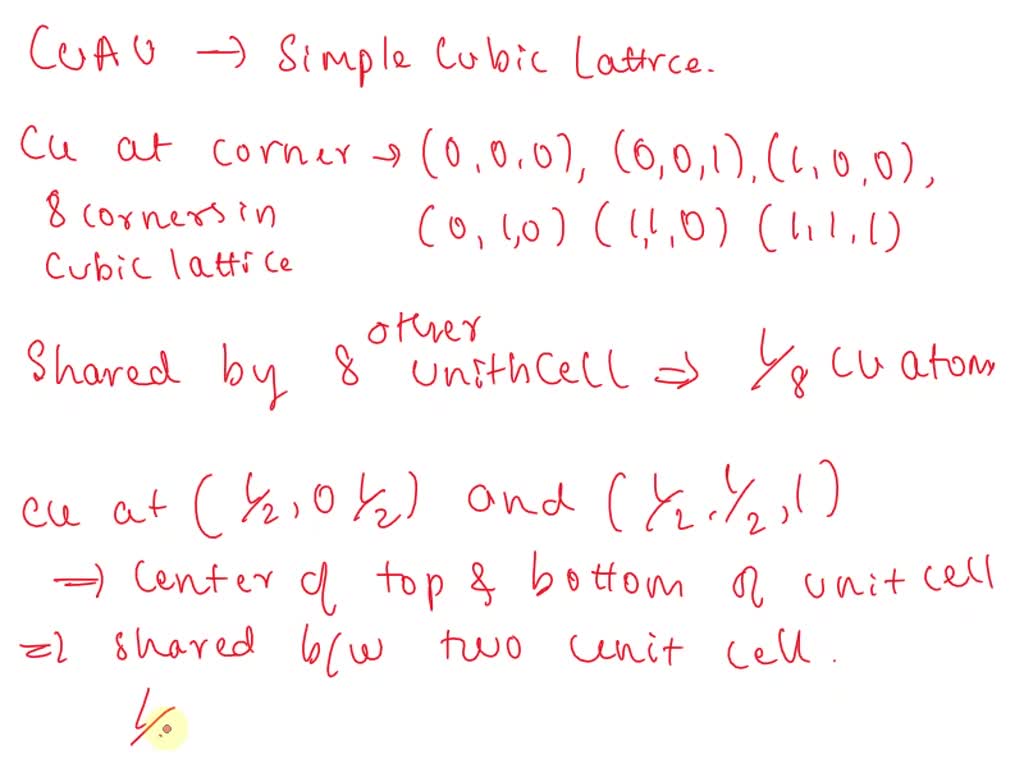 CuAu → Simple Cubic Lattice.
Cu at corner → (0,0,0), (0,0,1), (1,0,0),
8 corners in (0,1,0) (1,1,0) (1,1,1)
Cubic lattice
other
Shared by 8 unithcell ⇒ 1/8 Cu atom
Cu at (1/2, 0 1/2) and (1/2, 1/2, 1)
⇒ Center of top & bottom of unit cell
⇒ shared b/w two unit cell.
1/